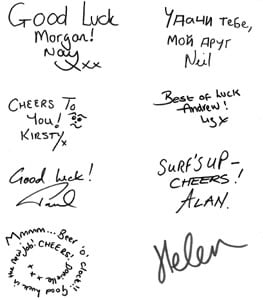 Good Luck
Morgan!
Nay xxx
Удачи тебе,
мой друг
Neil
CHEERS To
You!
KIRSTY x
Best of Luck
Andrew!
Liz x
Good Luck!
Paul
SURF'S UP –
CHEERS!
ALAN.
Mmmm... Beer 'o' Clock!! Good luck in the new Job. CHEERS! Danielle x x x
Helen